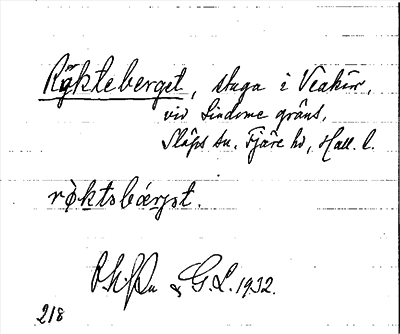 Rökteberget, stuga i Veakürr,
vid Lindome gräns,
Släps sn. Fjäre hd, Hall. l.
röktsbærjət.
& G.L. 1932.
218